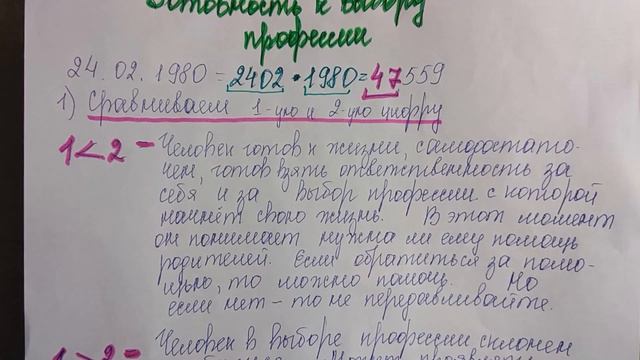 Готовность к выбору
профессии
24.02.1980 = 2402 • 1980 = 47 559
1) Сравниваем 1-ую и 2-ую цифру
1<2 - Человек готов к жизни, самодостато-
чен, готов взять ответственность за
себя и за выбор профессии с которой
начнёт свою жизнь. В этот момент
он понимает нужна ли ему помощь
родителей. Если обратиться за помо-
щью, то можно помощь. Но
если нет - то не передавливайте.
1>2 = Человек в выборе профессии склонен